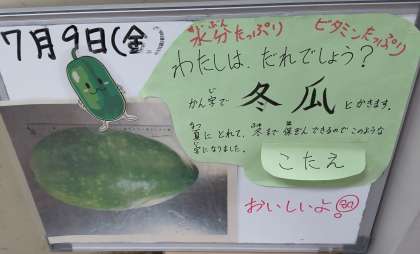 7月9日(金
水分たっぷり ビタミンたっぷり
わたしは、だれでしょう?
かん字で 冬瓜 とかきます。
夏にとれて、冬まで保ぞんできるのでこのような
字になりました。
こたえ
おいしいよ!